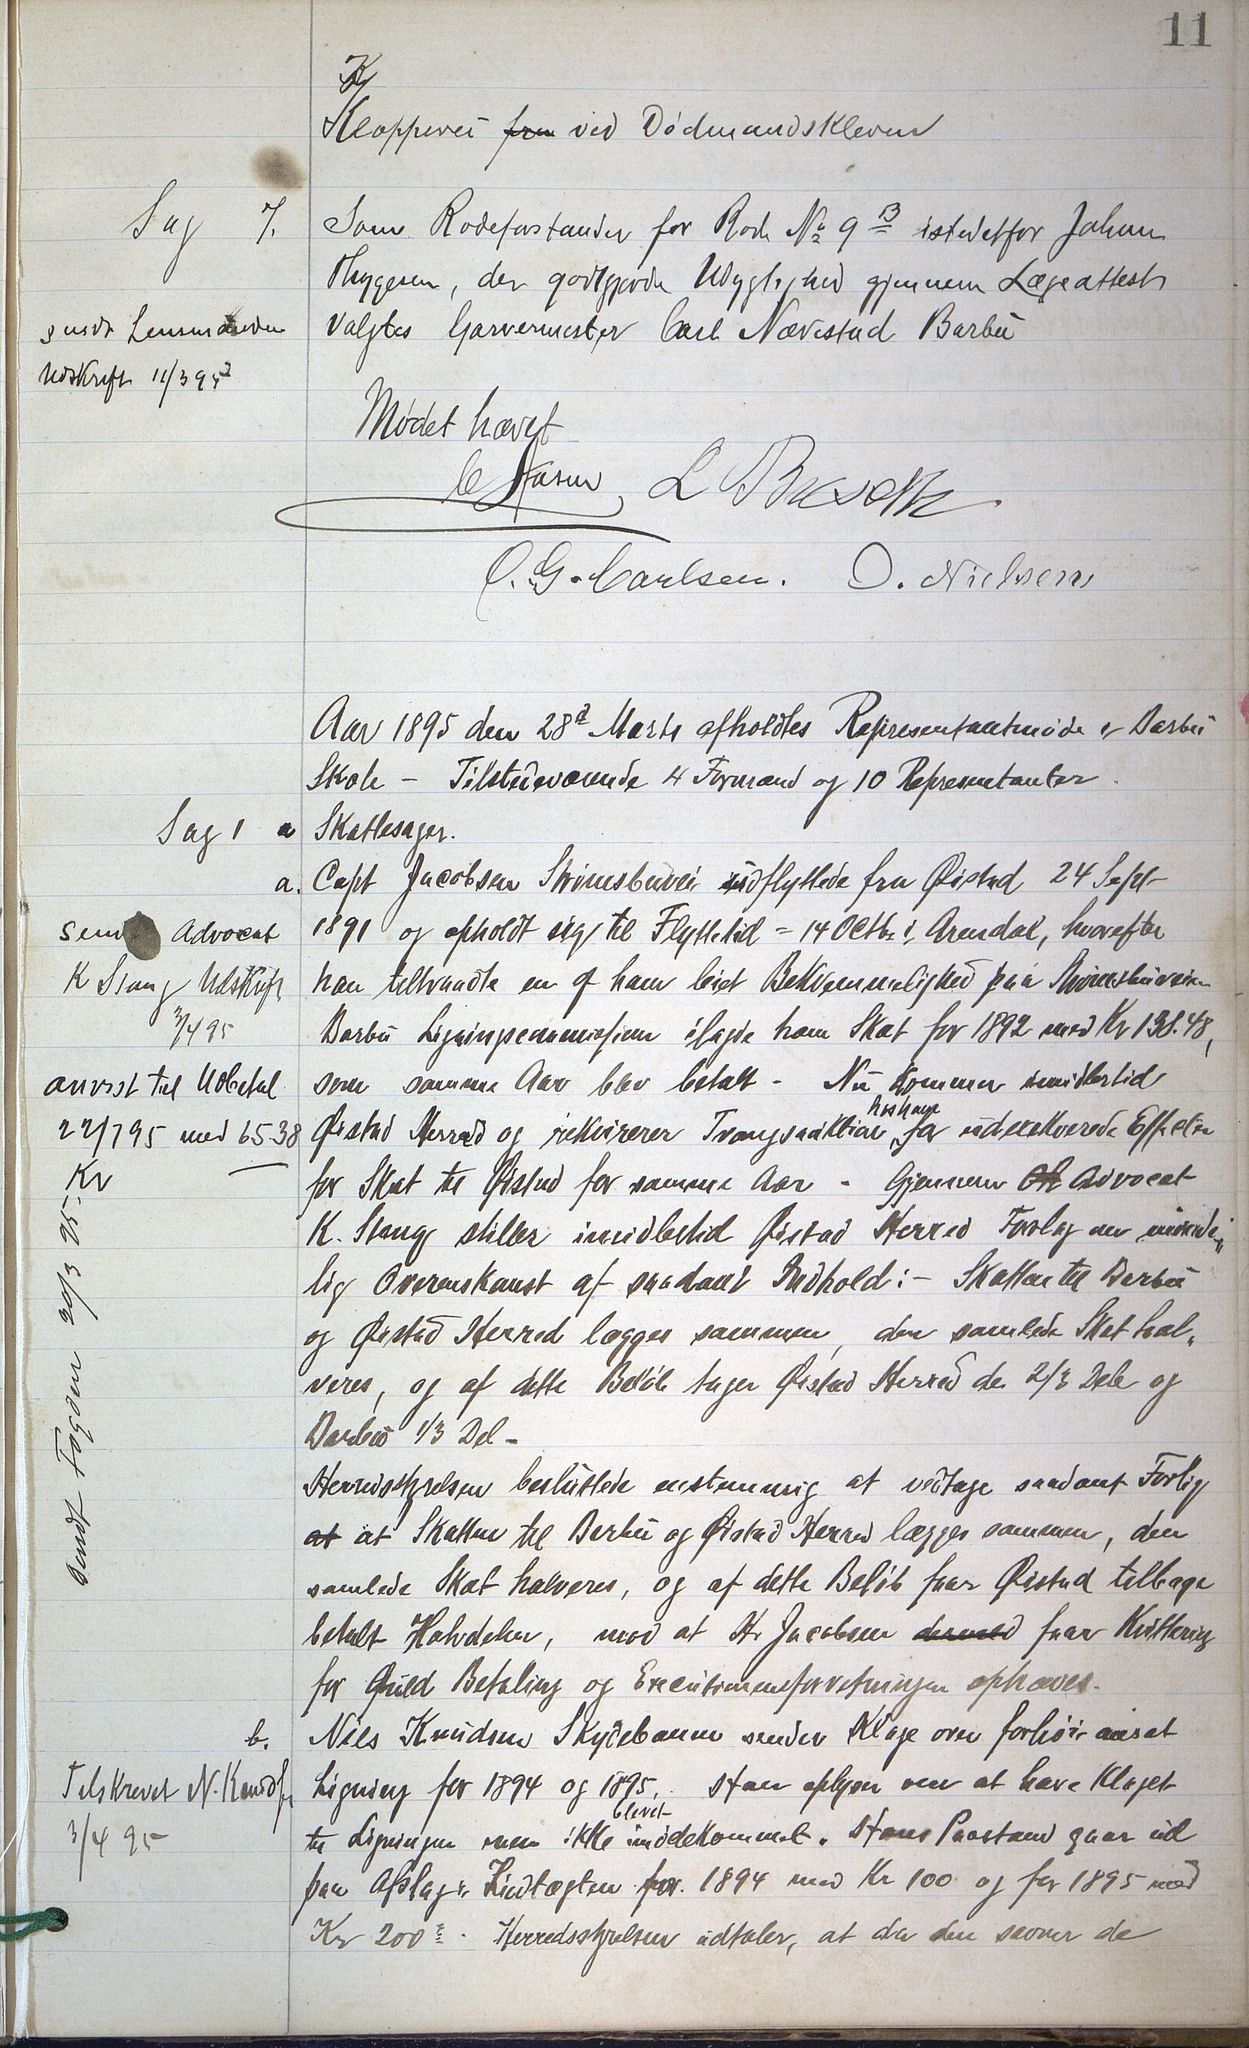 11
Kloppevei fra ved Dødmandskleven
Sag 7.
Som Rodeforstander for Rode No 9 B istedetfor Johan
Thygesen, der godtgjorde Udygtighed gjennem Lægeattest
valgtes Garvermester Carl Nævestad Barbu
sendt Lensmanden
Udskrift 11/3 95
Mødet hævet
L Busch
O. G. Carlsen. O. Nielsen
Aar 1895 den 28d Marts afholdtes Representantmøde i Barbu
Skole - Tilstedeværende 4 Formænd og 10 Representanter.
Sag 1 a Skattesager.
a. Capt Jacobsen Strømsbuvei udflyttede fra Øistad 24 Sept
1891 og opholdt sig til Flyttetid = 14 Octbr i Arendal, hvorefter
han tiltraadte en af ham leiet Bekvemmelighed paa Strømsbuveien
Barbu Ligningscommission ilagde ham Skat for 1892 med Kr 138.48,
som samme Aar blev betalt - Nu kommer imidlertid
Øistad Herred og rekvirerer Tvangsauktion hos ham for udexekverede Effecter
for Skat til Øistad for samme Aar - Gjennem Advocat
K. Stang stiller imidlertid Øistad Herred Forslag om minde-
lig Overenskomst af saadant Indhold: - Skatten til Barbu
og Øistad Herred lægges sammen, den samlede Skat hal-
veres, og af dette Beløb tager Øistad Herred de 2/3 Dele og
Barbu 1/3 Del -
Herredsstyrelsen besluttede enstemmig at vedtage saadant Forlig
at at Skatten til Barbu og Øistad Herred lægges sammen, den
samlede Skat halveres, og af dette Beløb faar Øistad tilbage
betalt Halvdelen, mod at Hr Jacobsen dermed faar Kvittering
for fuld Betaling og Executionsforretningen ophæves.
sendt Advocat
K Stang Udskrift
3/4 95
anvist til Udbetal
22/7 95 med 65.38
Kr
sendt Fogden 30/3 95
b. Niels Knudsen Skydebanen sender Klage over forhøiet ansat
Ligning for 1894 og 1895. Han oplyser om at have klaget
til Ligningen men ikke blevet imødekommet. Hans Paastand gaar ud
paa Afslag i Indtægten for 1894 med Kr 100 og for 1895 med
Kr 200 - Herredsstyrelsen udtaler, at da den savner de
Tilskrevet N. Knuds
3/4 95